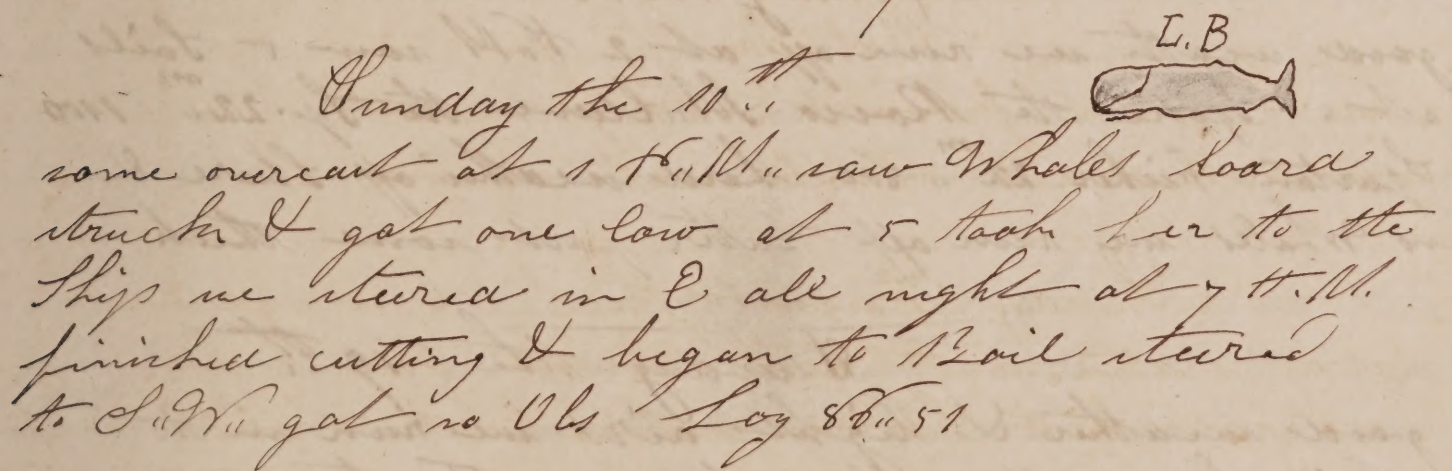 L.B
Sunday the 10th
some overcast at 1 P.M. saw Whales Loard
struck & got one Cow at 5 took her to the
Ship we steered in E all night at 7 A.M.
finished cutting & began to Boil steered
to S.W. got no Obs Log 51